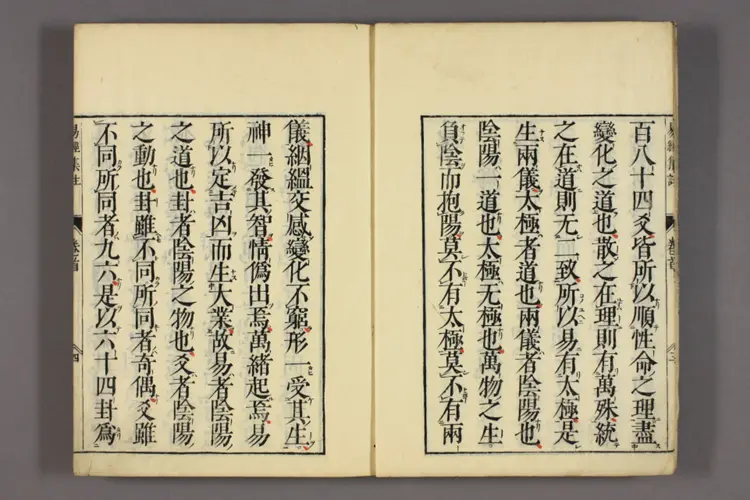 百八十四爻皆所以順性命之理盡
變化之道也散之在理則有萬殊統
之在道則无二致所以易有太極是
生兩儀太極者道也兩儀者陰陽也
陰陽一道也太極无極也萬物之生
負陰而抱陽莫不有太極莫不有兩
儀絪縕交感變化不窮形一受其生
神一發其智情僞出焉萬緒起焉易
所以定吉凶而生大業故易者陰陽
之道也卦者陰陽之物也爻者陰陽
之動也卦雖不同所同者奇偶爻雖
不同所同者九六是以六十四卦爲
易經集註
卷首
四